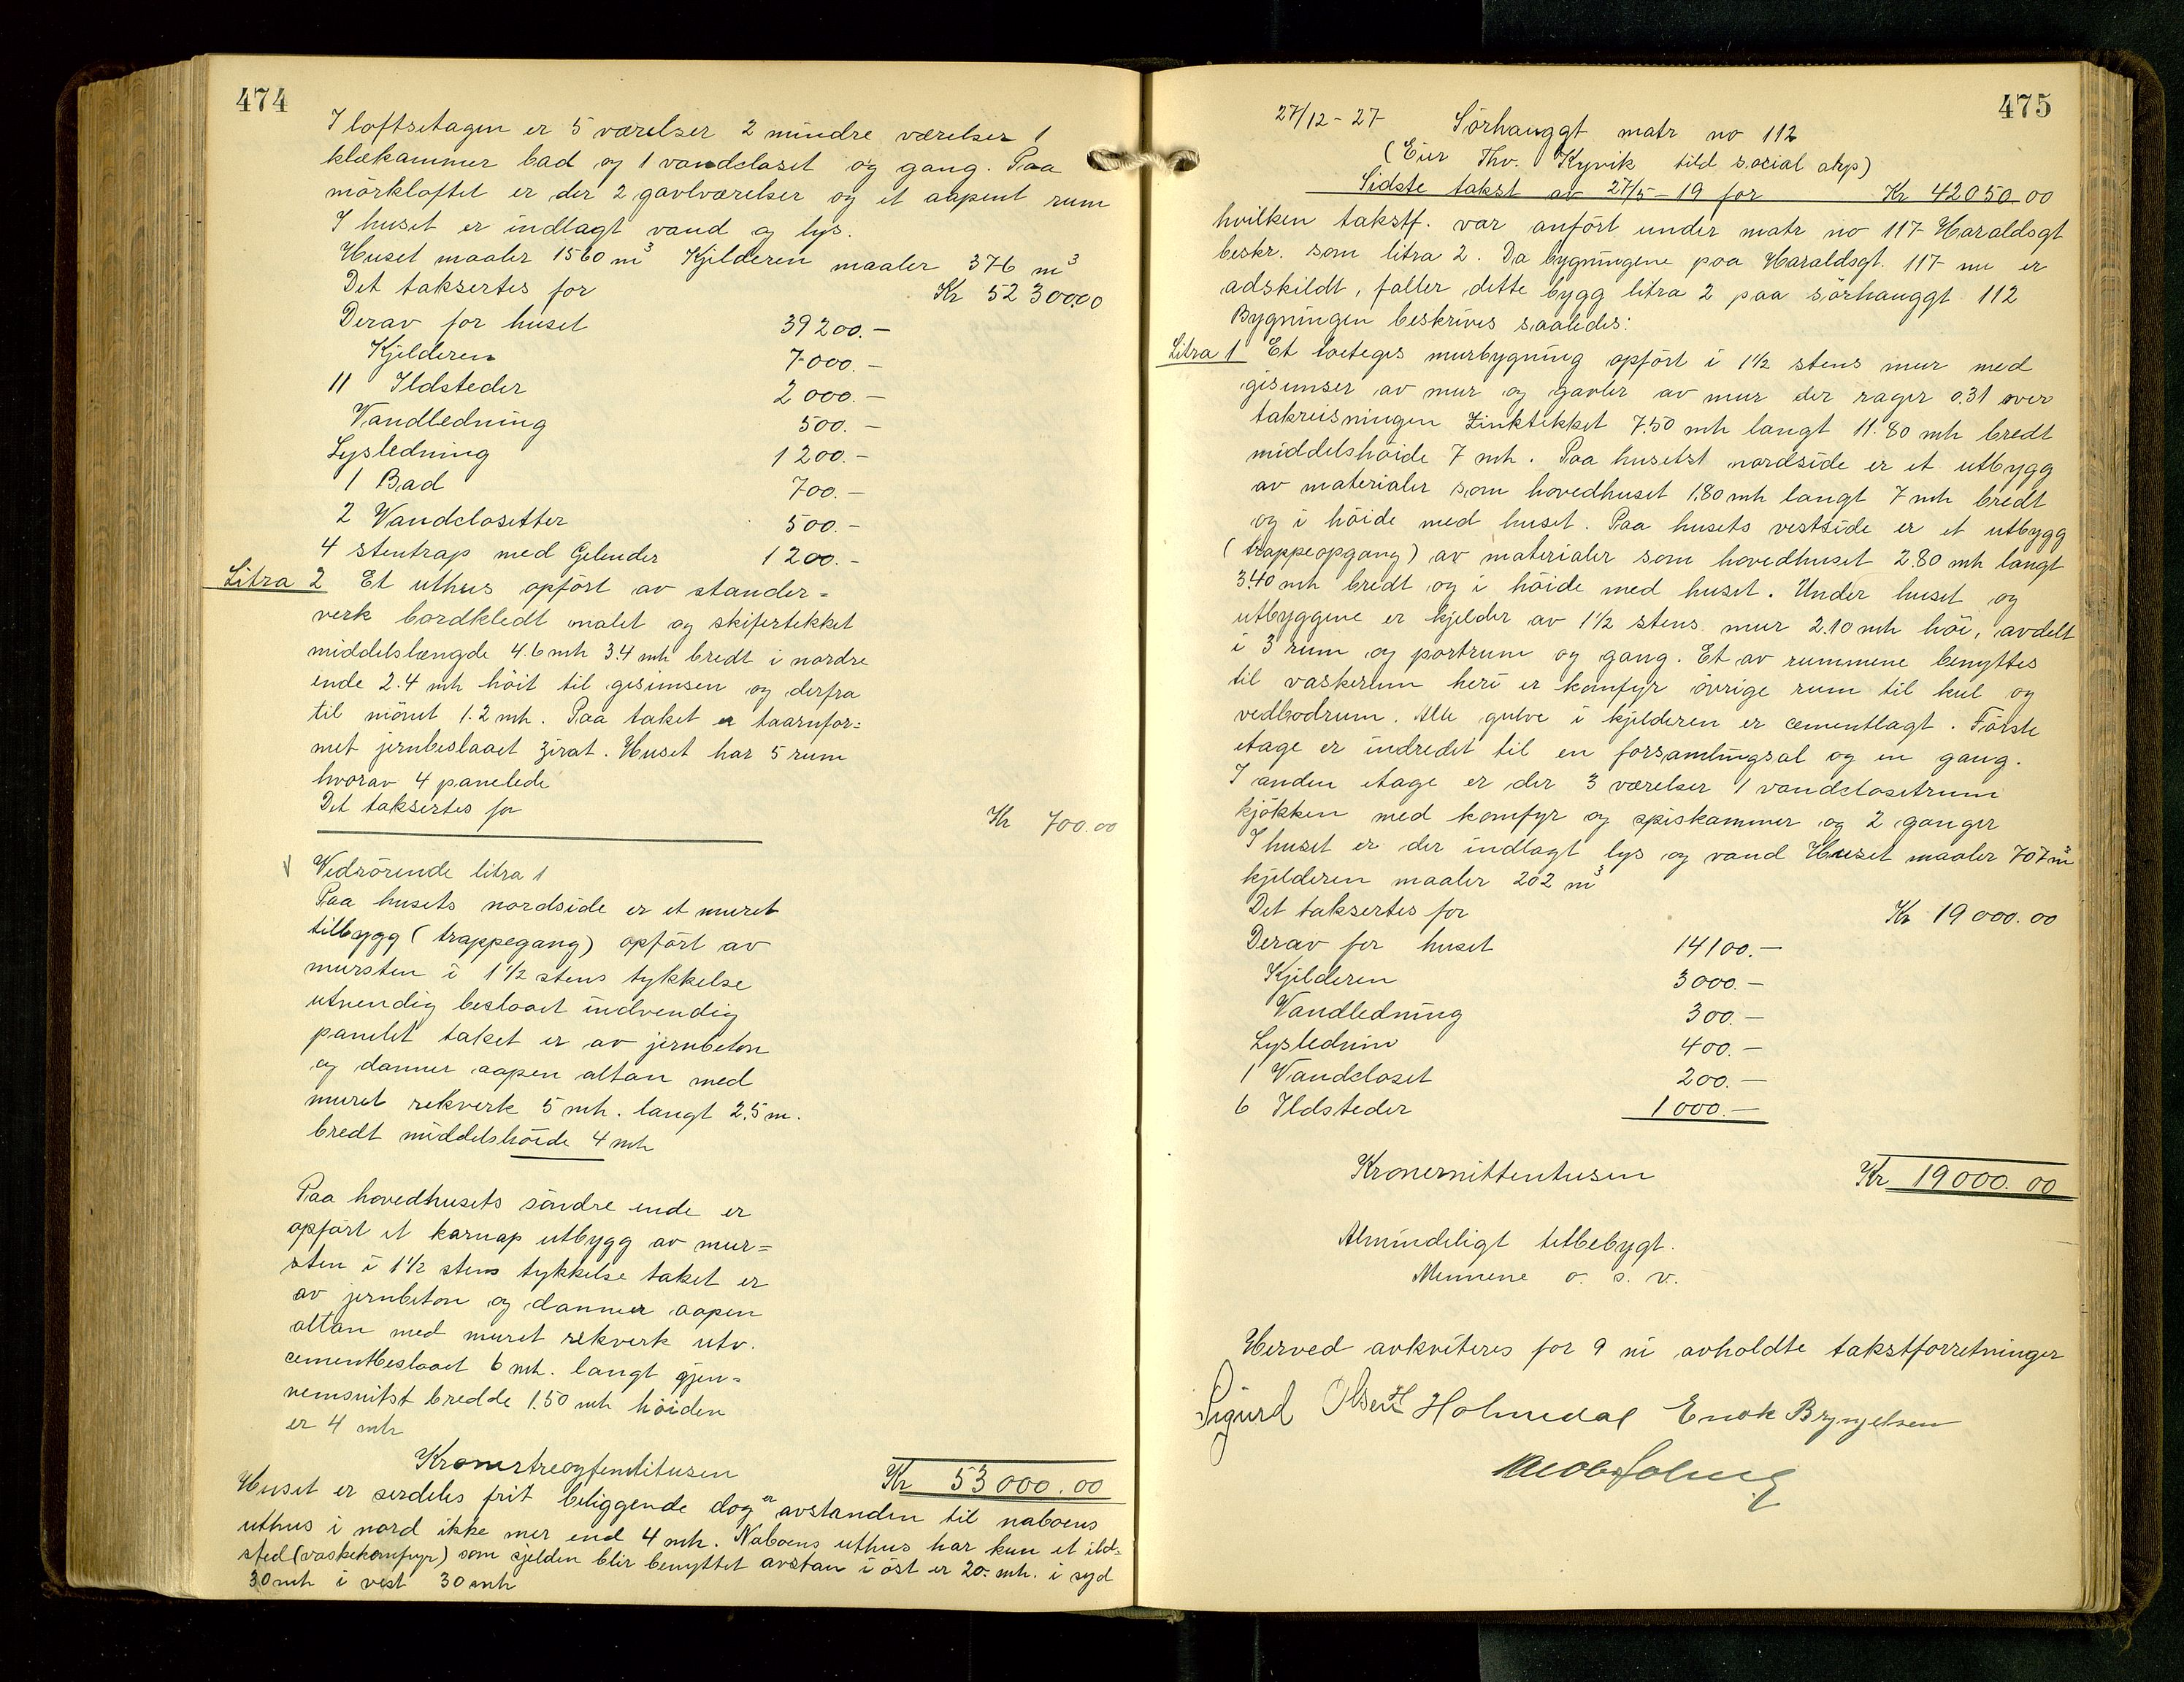 474
I loftsetagen er 5 værelser 2 mindre værelser 1
klækammer bad og 1 vandcloset og gang. Paa
mörkloftet er der 2 gavlværelser og et aapent rum
I huset er indlagt vand og lys.
Huset maaler 1560 m³ Kjelderen maaler 376 m³
Det taksertes for Kr 52300.00
Derav for huset 39200.-
Kjelderen 7000.-
11 Ildsteder 2000.-
Vandledning 500.-
Lysledning 1200.-
1 Bad 700.-
2 Vandclosetter 500.-
4 stentrap med Gelender 1200.-
Litra 2 Et uthus opfört av stander=
verk bordkledt malet og skifertekket
middelslængde 4.6 mh 3.4 mh bredt i nordre
ende 2.4 mh höit til gesimsen og derfra
til mönet 1.2 mh. Paa taket er taarnfor=
met jernbeslaaet zirat. Huset har 5 rum
hvorav 4 panelede
Det taksertes for Kr 700.00
Vedrörende litra 1
Paa husets nordside er et muret
tilbygg (trappegang) opfört av
mursten i 1½ stens tykkelse
utvendig beslaaet indvendig
panelet taket er av jernbeton
og danner aapen altan med
muret rekverk 5 mh. langt 2.5 m.
bredt middelshöide 4 mh
Paa hovedhusets söndre ende er
opfört et karnap utbygg av mur=
sten i 1½ stens tykkelse taket er
av jernbeton og danner aapen
altan med muret rekverk utv.
cementbeslaaet 6 mh. langt gjen=
nemsnitst bredde 1.50 mh höiden
er 4 mh
Kronertreogfemtitusen Kr 53000.00
Huset er serdeles frit beliggende dog er avstanden til naboens
uthus i nord ikke mer end 4 mh. Naboens uthus har kun et ild=
sted (vaskekomfyr) som sjelden blir benyttet avstan i öst er 20 mh. i syd
30 mh i vest 30 mh
475
27/12-27 Sörhauggt matr no 112
(Eier Thv. Kyvik tild social akp)
Sidste takst av 27/5-19 for Kr 42050.00
hvilken takstf. var anfört under matr no 117 Haraldsgt
beskr. som litra 2. Da bygningene paa Haraldsgt. 117 nu er
adskildt, faller dette bygg litra 2 paa sörhauggt 112
Bygningen beskrives saaledes:
Litra 1 Et toetages murbygning opfört i 1½ stens mur med
gisimser av mur og gavler av mur der rager 0.31 over
takreisningen Zinktekket 7.50 mh langt 11.80 mh bredt
middelshöide 7 mh. Paa husetst nordside er et utbygg
av materialer som hovedhuset 1.80 mh langt 7 mh bredt
og i höide med huset. Paa husets vestside er et utbygg
(trappeopgang) av materialer som hovedhuset 2.80 mh langt
3.40 mh bredt og i höide med huset. Under huset og
utbyggene er kjelder av 1½ stens mur 2.10 mh höi, avdelt
i 3 rum og portrum og gang. Et av rummene benyttes
til vaskerum heri er komfyr övrige rum til kul og
vedbodrum. Alle gulve i kjelderen er cementlagt. Förste
etage er indredet til en forsamlingsal og en gang.
I anden etage er der 3 værelser 1 vandclosetrum
kjökken med komfyr og spiskammer og 2 ganger
I huset er der indlagt lys og vand Huset maaler 707 m³
kjelderen maaler 202 m³
Det taksertes for Kr 19000.00
Derav for huset 14100.-
Kjelderen 3000.-
Vandledning 300.-
Lyslednin 400.-
1 Vandcloset 200.-
6 Ildsteder 1000.-
Kronernittentusen Kr 19000.00
Almindeligt tetbebygt.
Mennene o. s. v.
Herved avkviteres for 9 ni avholdte takstforretninger
Sigurd Olsen H Holmedal Enok Bryngelsen